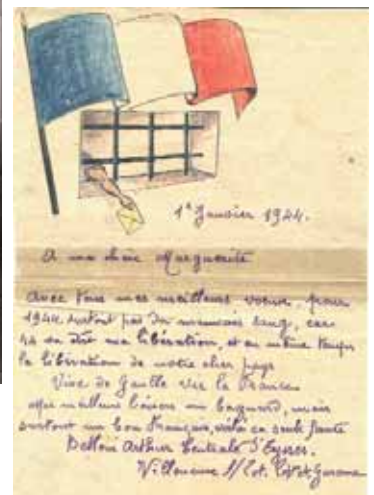 1er Janvier 1944.
A ma chère Marguerite
avec tous mes meilleurs voeux, pour
1944 surtout pas du mauvais sang, car
44 ma libération, et en même temps
la libération de notre cher pays
Vive de Gaulle vive la France
meilleurs baisers un bagnard, mais
surtout un bon Français, voilà sa seule faute
Arthur Centrale d'Eysses.
Villeneuve s/Lot. Lot et Garonne